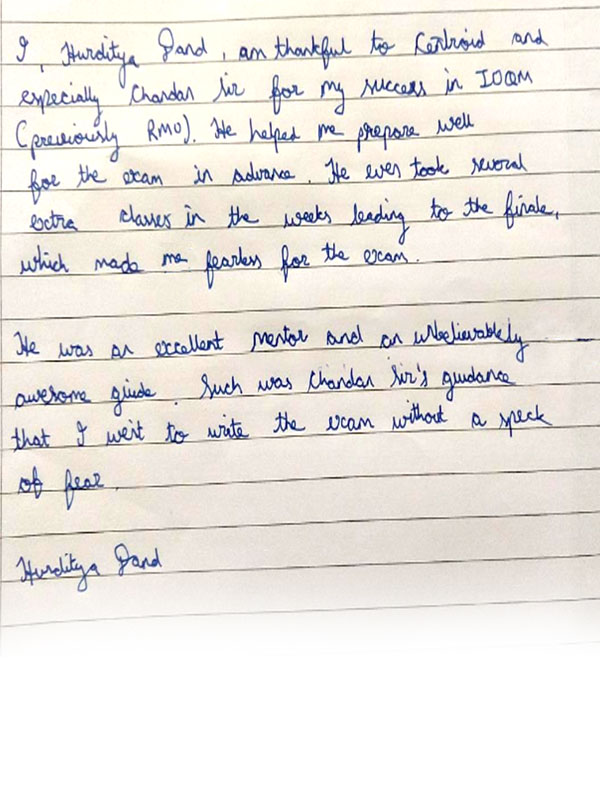 I, Hurditya Dand, am thankful to Centroid and
especially Chandan Sir for my success in IOQM
(previously RMO). He helped me prepare well
for the exam in advance. He even took several
extra classes in the weeks leading to the finale,
which made me fearless for the exam.
He was an excellent mentor and an unbelievably
awesome guide. Such was Chandan Sir's guidance
that I went to write the exam without a speck
of fear.
Hurditya Dand